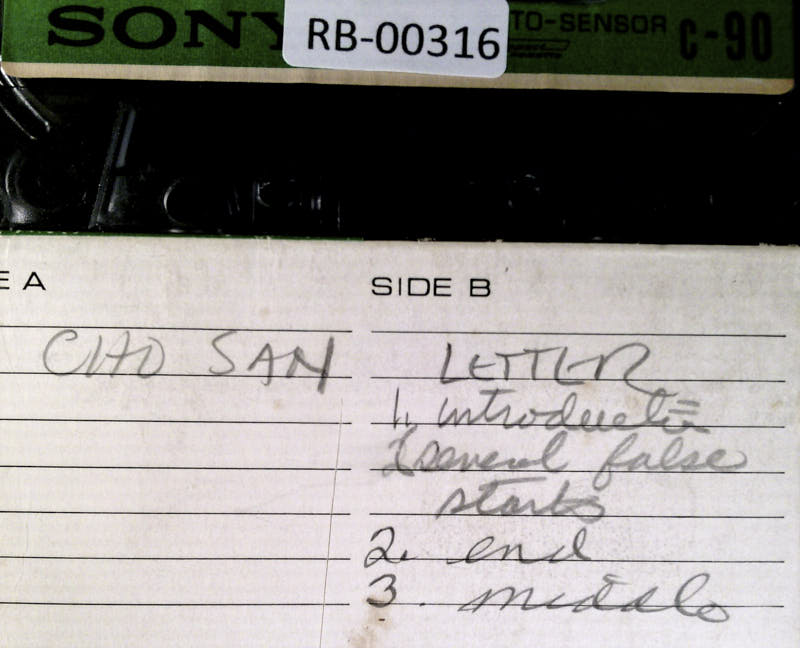 SONY
RB-00316
TO-SENSOR
C-90
E A
SIDE B
CHO SAN
LETTER
1. introduction
(several false
starts
2. end
3. middle